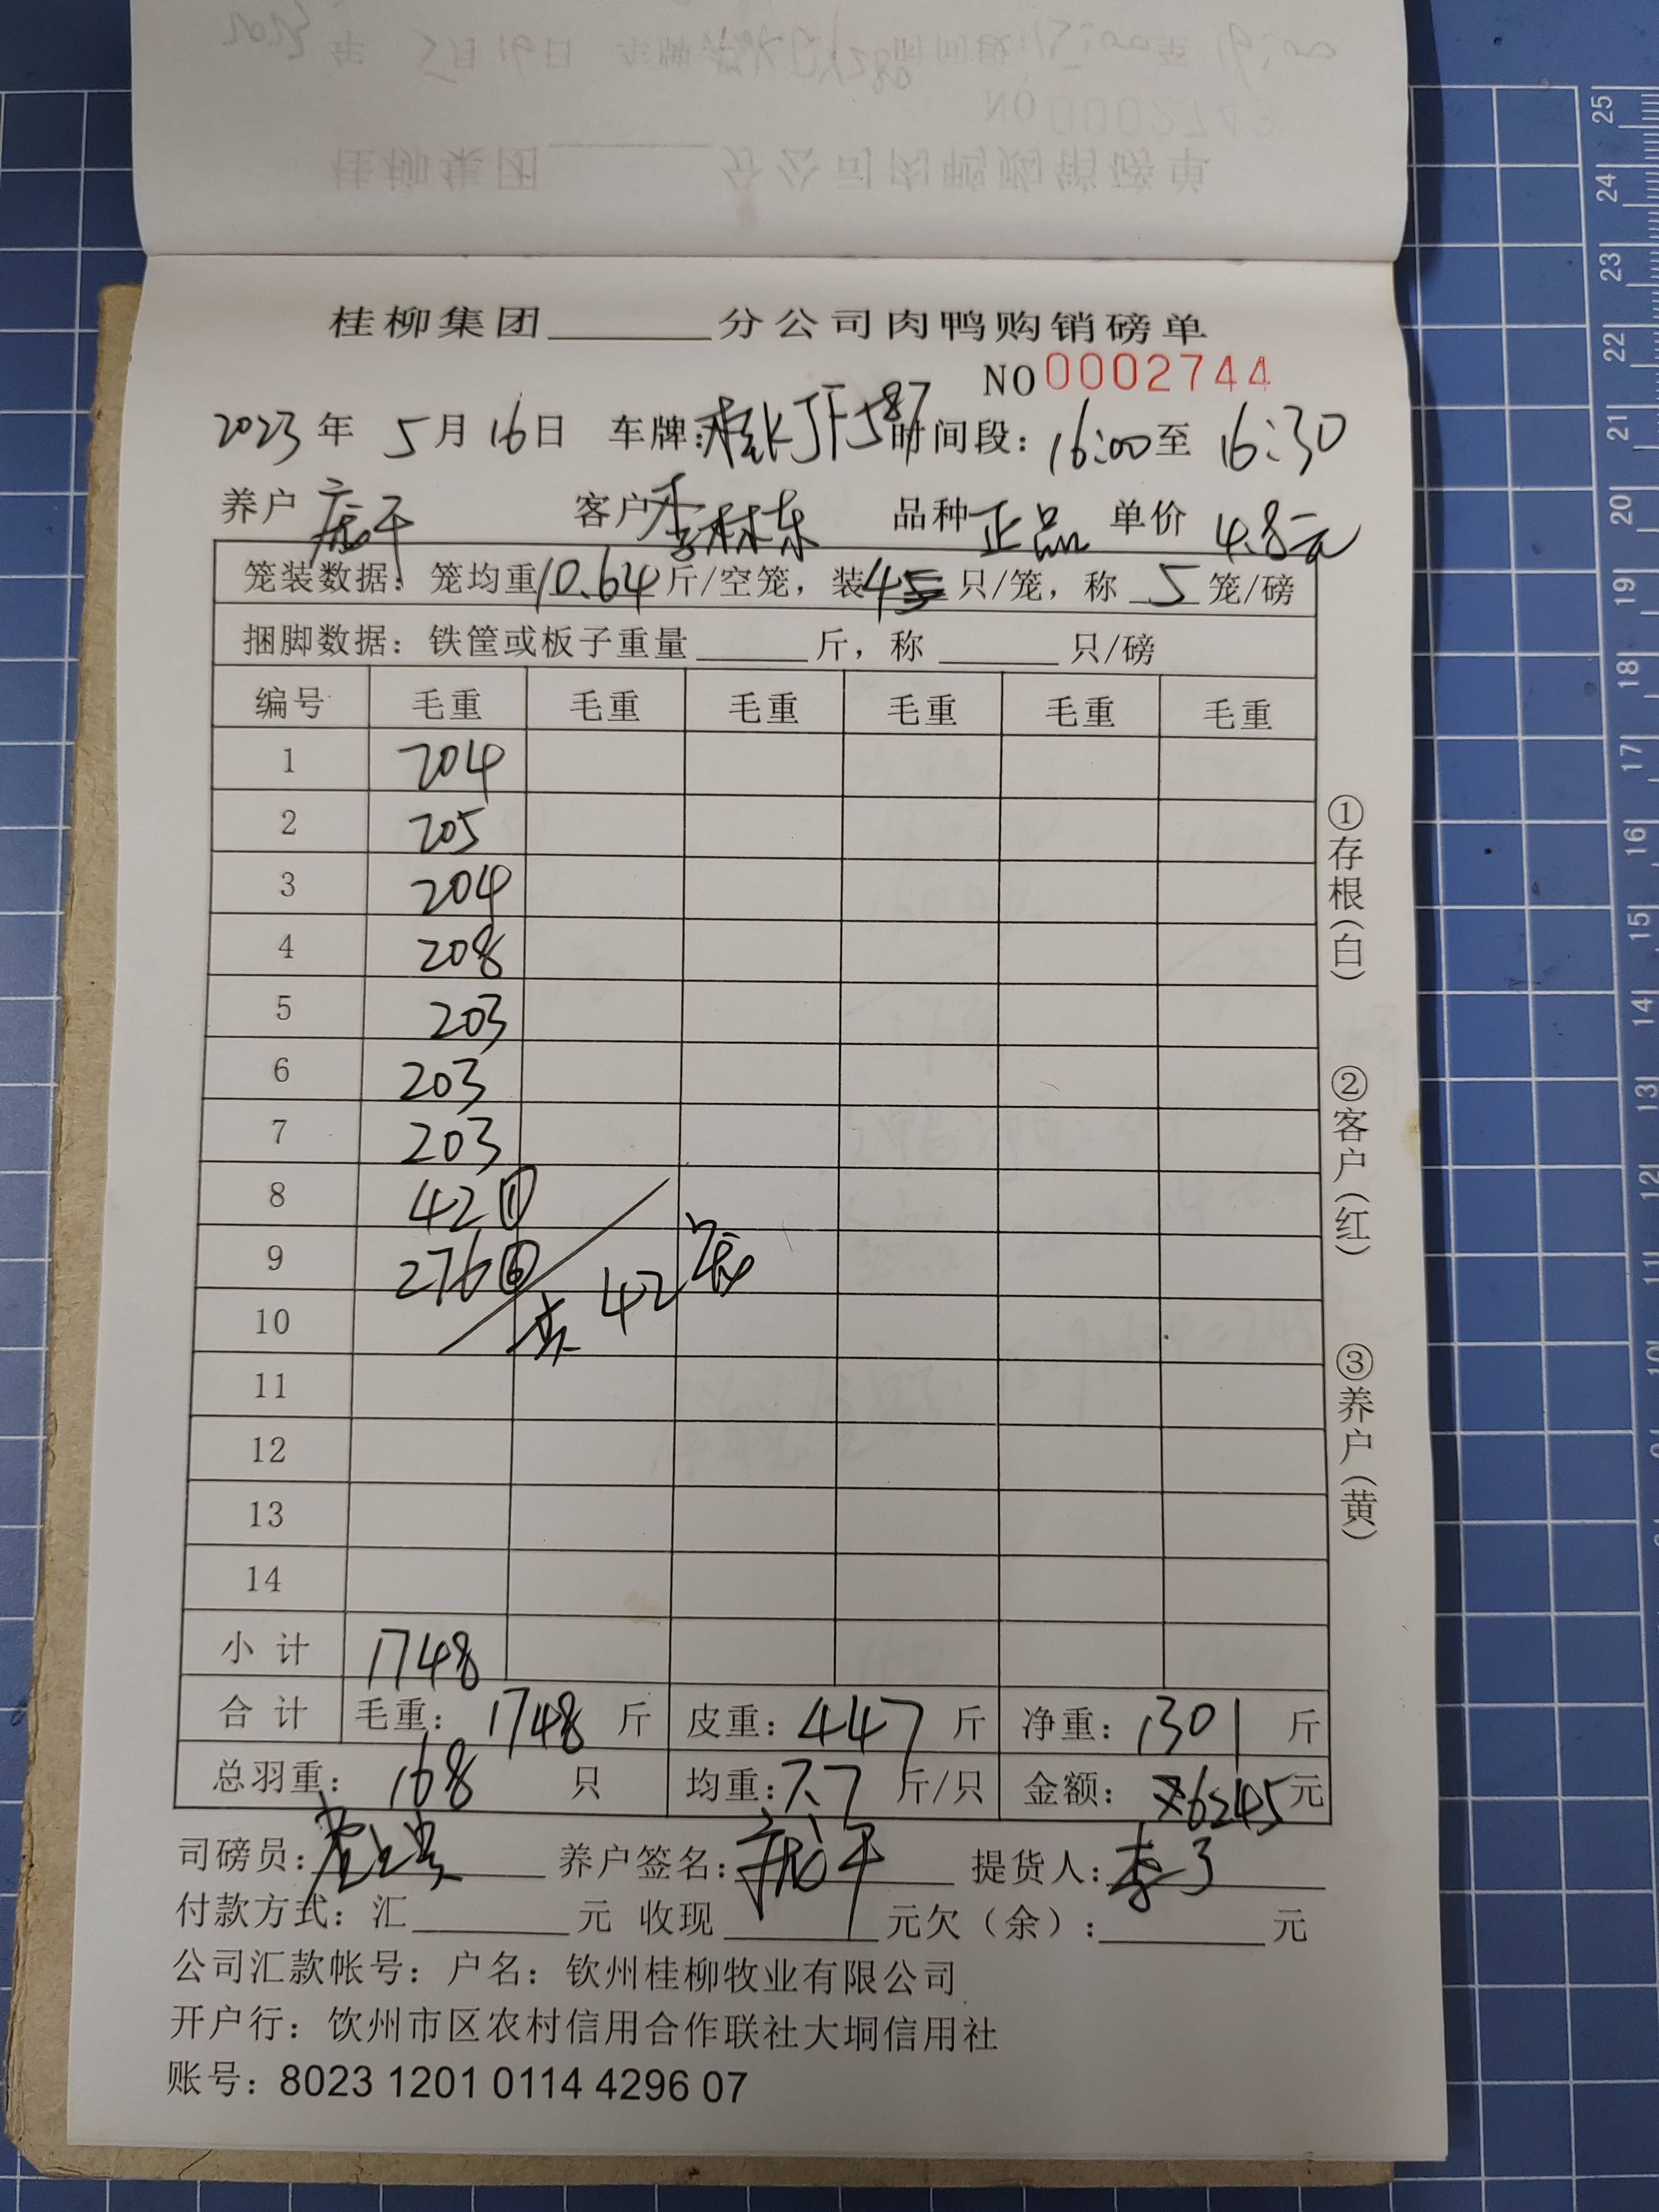 桂柳集团______分公司肉鸭购销磅单
NO 0002744
2023年 5月16日 车牌:桂KJF587 时间段: 16:00至 16:30
养户 客户 李林东 品种 正品 单价 4.8元
笼装数据: 笼均重10.64斤/空笼, 装4只/笼, 称 5 笼/磅
捆脚数据: 铁筐或板子重量______斤, 称______只/磅
编号 毛重 毛重 毛重 毛重 毛重 毛重
1 204
2 205
3 204
4 208
5 203
6 203
7 203
8 42①
9 276⑥
10 共 42笼
11
12
13
14
小计 1748
合计 毛重: 1748 斤 皮重: 447 斤 净重: 1301 斤
总羽重: 168 只 均重: 7.7 斤/只 金额: 6245元
司磅员: 养户签名: 提货人:
付款方式: 汇______元 收现______元欠(余):______元
公司汇款帐号: 户名: 钦州桂柳牧业有限公司
开户行: 饮州市区农村信用合作联社大垌信用社
账号: 8023 1201 0114 4296 07
①存根(白)
②客户(红)
③养户(黄)
25
24
23
22
21
20
19
18
17
16
15
14
13
12
11
10